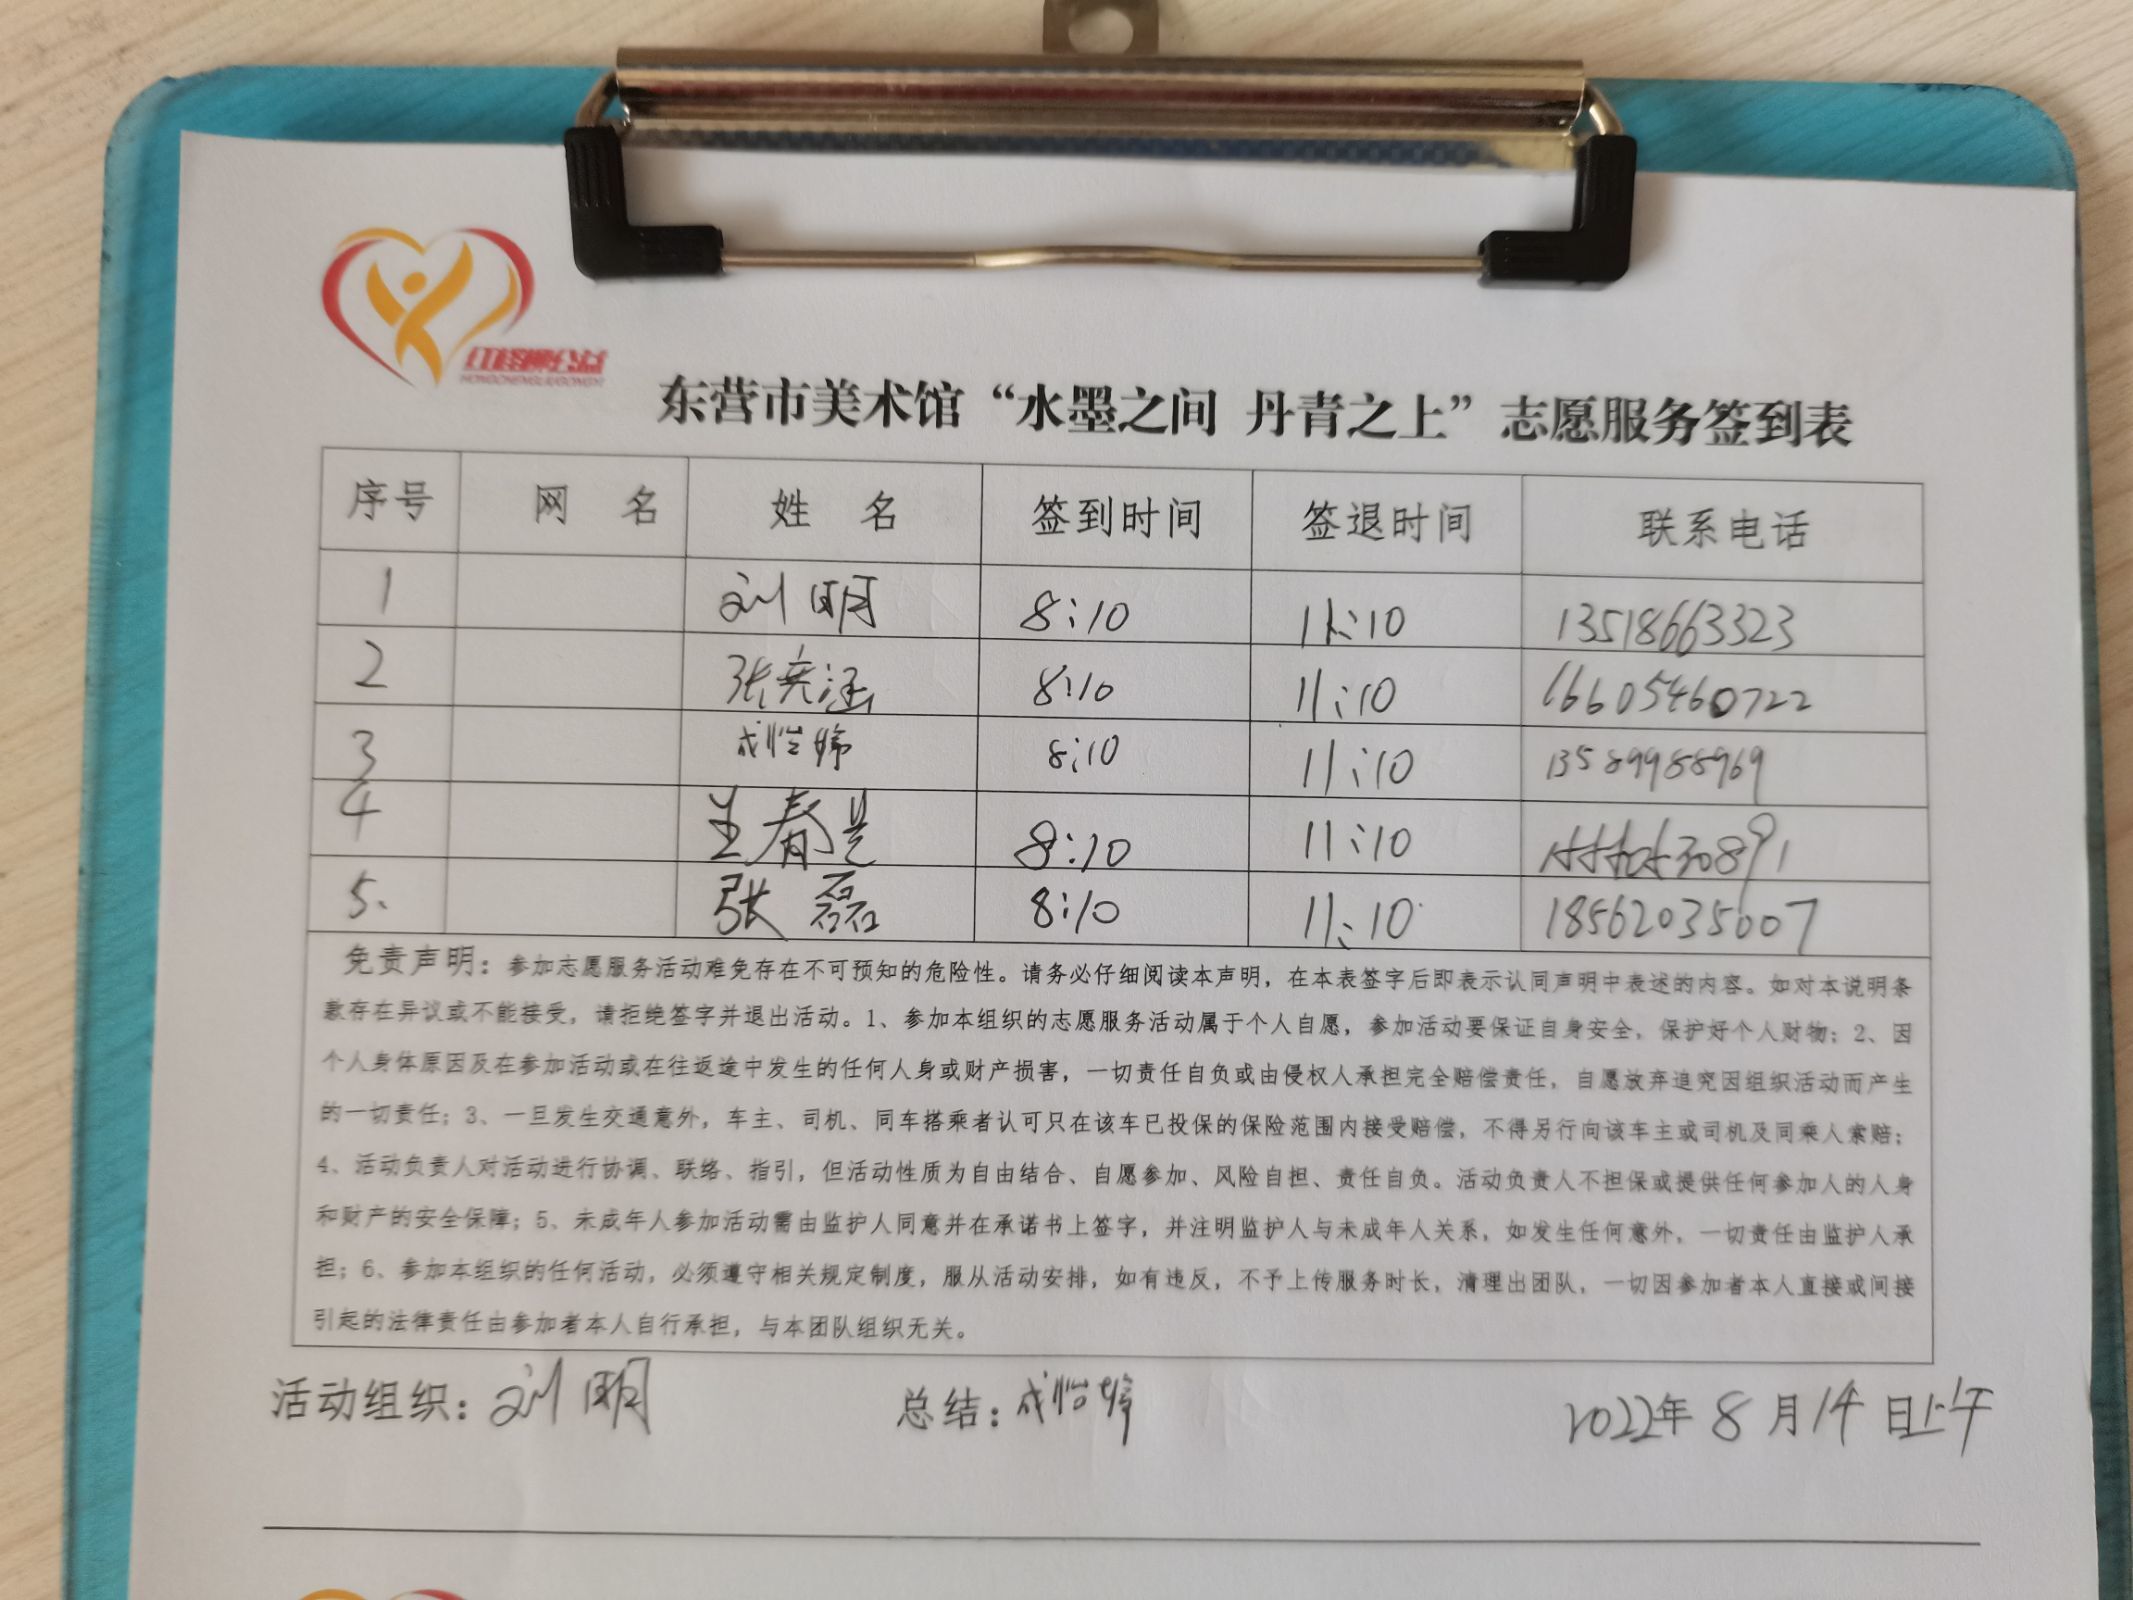 HONGCHENGLIUGONGYI
东营市美术馆“水墨之间 丹青之上”志愿服务签到表
序号 网 名 姓 名 签到时间 签退时间 联系电话
1 刘明 8:10 11:10 13518663323
2 张 涵 8:10 11:10 16605460722
3 成怡婷 8:10 11:10 13589988969
4 王春 8:10 11:10
5. 张磊 8:10 11:10 18562035007
免责声明：参加志愿服务活动难免存在不可预知的危险性。请务必仔细阅读本声明，在本表签字后即表示认同声明中表述的内容。如对本说明条
款存在异议或不能接受，请拒绝签字并退出活动。1、参加本组织的志愿服务活动属于个人自愿，参加活动要保证自身安全，保护好个人财物；2、因
个人身体原因及在参加活动或在往返途中发生的任何人身或财产损害，一切责任自负或由侵权人承担完全赔偿责任，自愿放弃追究因组织活动而产生
的一切责任；3、一旦发生交通意外，车主、司机、同车搭乘者认可只在该车已投保的保险范围内接受赔偿，不得另行向该车主或司机及同乘人索赔；
4、活动负责人对活动进行协调、联络、指引，但活动性质为自由结合、自愿参加、风险自担、责任自负。活动负责人不担保或提供任何参加人的人身
和财产的安全保障；5、未成年人参加活动需由监护人同意并在承诺书上签字，并注明监护人与未成年人关系，如发生任何意外，一切责任由监护人承
担；6、参加本组织的任何活动，必须遵守相关规定制度，服从活动安排，如有违反，不予上传服务时长，清理出团队，一切因参加者本人直接或间接
引起的法律责任由参加者本人自行承担，与本团队组织无关。
活动组织：刘明 总结：成怡婷 2022年 8 月 14 日上午